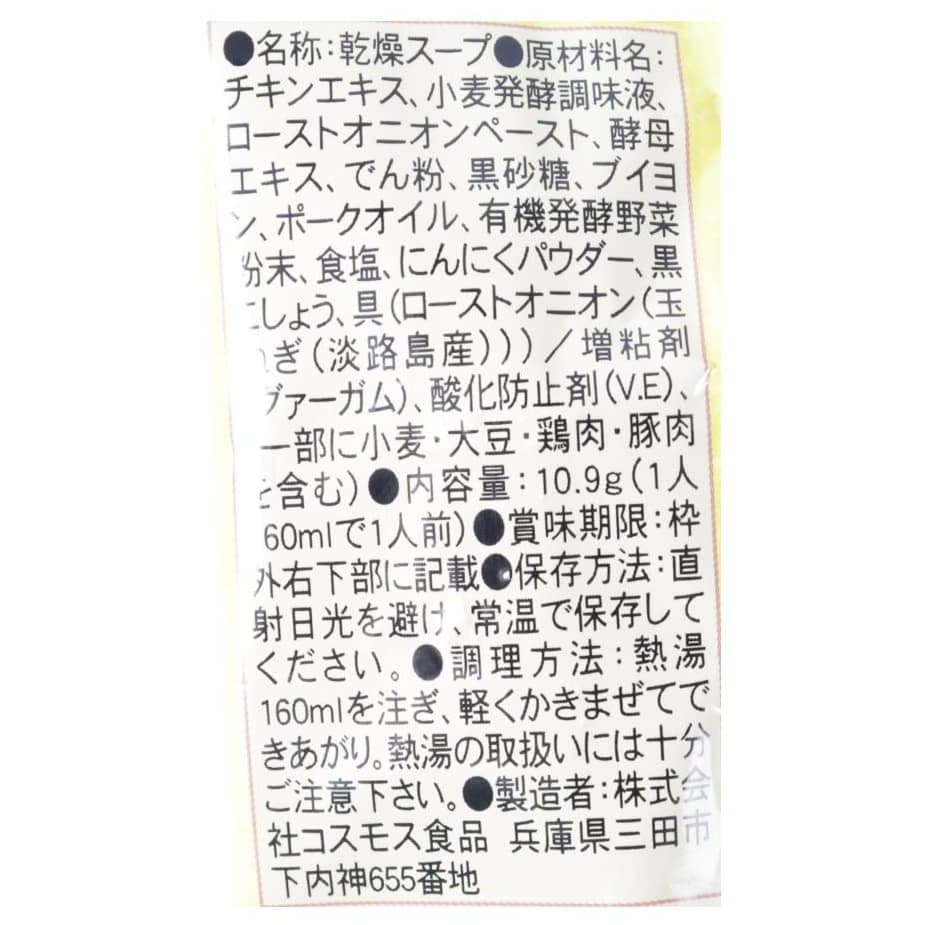 ●名称:乾燥スープ●原材料名:
チキンエキス、小麦発酵調味液、
ローストオニオンペースト、酵母
エキス、でん粉、黒砂糖、ブイヨ
ン、ポークオイル、有機発酵野菜
粉末、食塩、にんにくパウダー、黒
こしょう、具(ローストオニオン(玉
ねぎ(淡路島産)))/増粘剤
(グァーガム)、酸化防止剤(V.E)、
(一部に小麦・大豆・鶏肉・豚肉
を含む)●内容量:10.9g(1人
60mlで1人前)●賞味期限:枠
外右下部に記載●保存方法:直
射日光を避け、常温で保存して
ください。●調理方法:熱湯
160mlを注ぎ、軽くかきまぜてで
きあがり。熱湯の取扱いには十分
ご注意下さい。●製造者:株式会
社コスモス食品 兵庫県三田市
下内神655番地